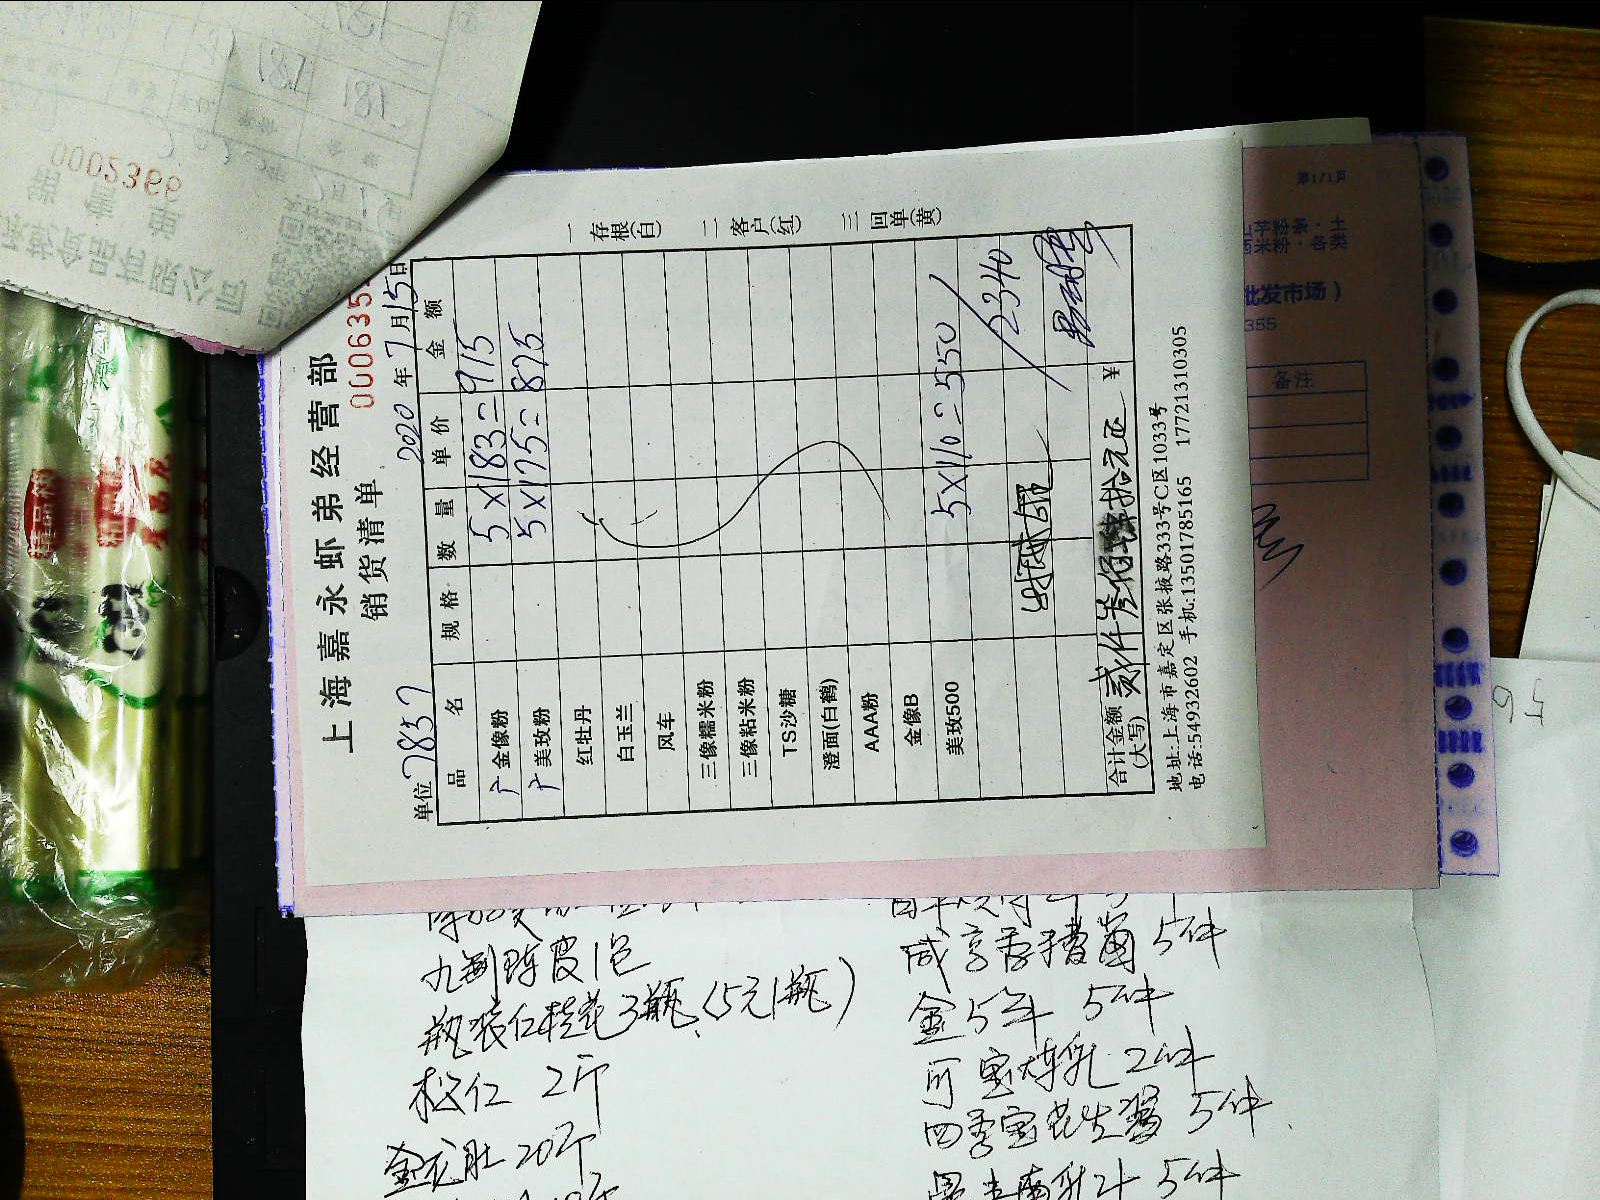 上海嘉永虾弟经营部
销货清单
0006354
单位 7857 2020 年 7 月 15 日
品 名 规 格 数 量 单 价 金 额
广 金像粉 5×183=915
广 美玫粉 5×175=875
红牡丹
白玉兰
风车
三像糯米粉
三像粘米粉
TS沙糖
澄面(白鹤)
AAA粉
金像B
美玫500 5×110=550
2340
合计金额(大写) 贰仟叁佰肆拾元正 ¥
地址:上海市嘉定区张掖路333号C区1033号
电话:54932602 手机:13501785165 17721310305
一 存根(白) 二 客户(红) 三 回单(黄)
0002366
第1/1页
山芋粉条·土
西米粉·各类
批发市场)
355
备注
九制陈皮1包
瓶装仁桂花3瓶(5元1瓶)
松仁 2斤
20斤
咸亨香糟卤 5件
金5年 5件
可宝炼乳 2件
四季宝花生酱 5件
5件
精品粉